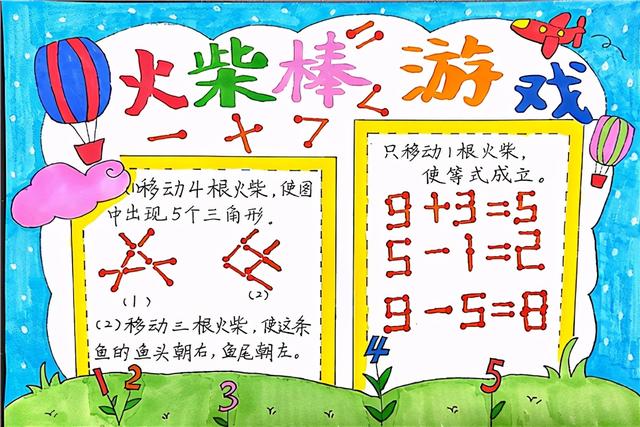 火柴棒游戏
=
- + > <
(1)移动4根火柴,使图
中出现5个三角形.
(1) (2)
(2)移动三根火柴,使这条
鱼的鱼头朝右,鱼尾朝左。
只移动1根火柴,
使等式成立。
9+3=5
5-1=2
9-5=8
1 2 3 4 5